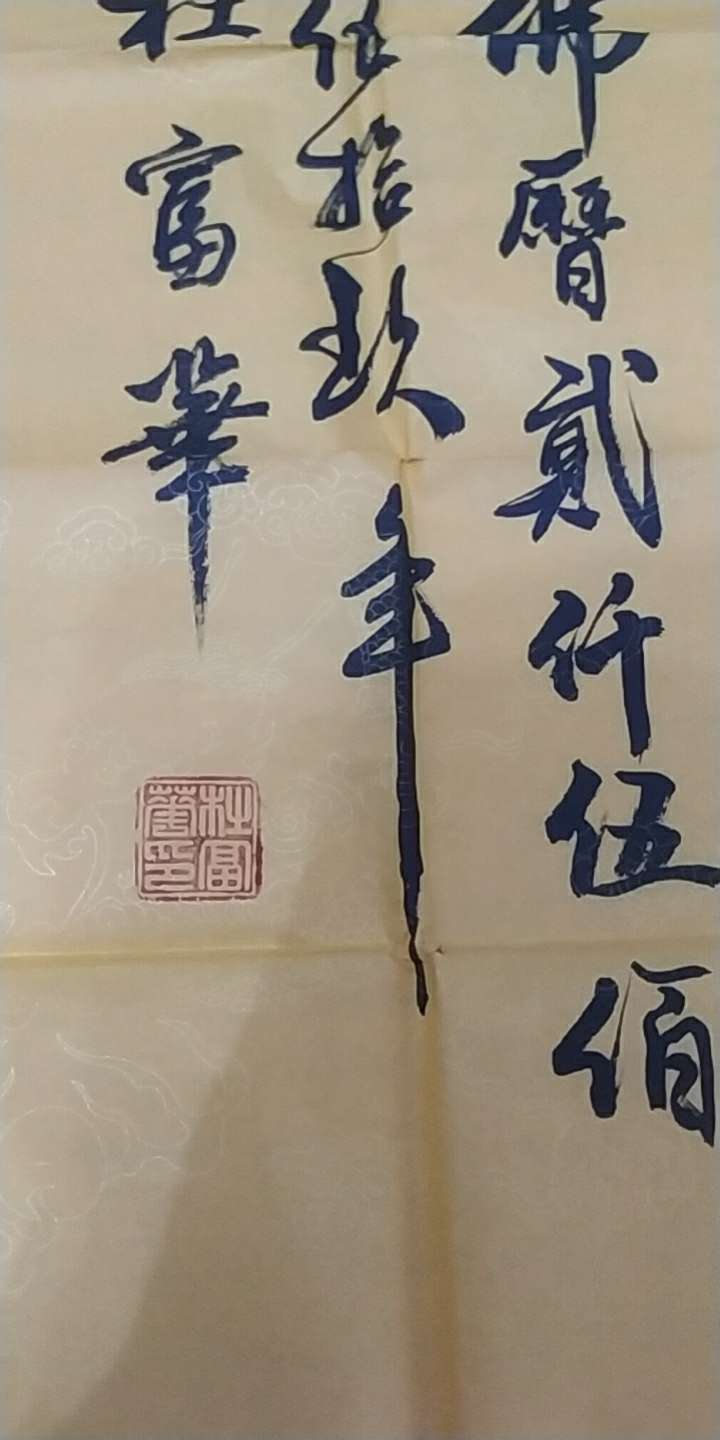 佛曆貳仟伍佰
伍拾玖年
杜富華
杜富華印